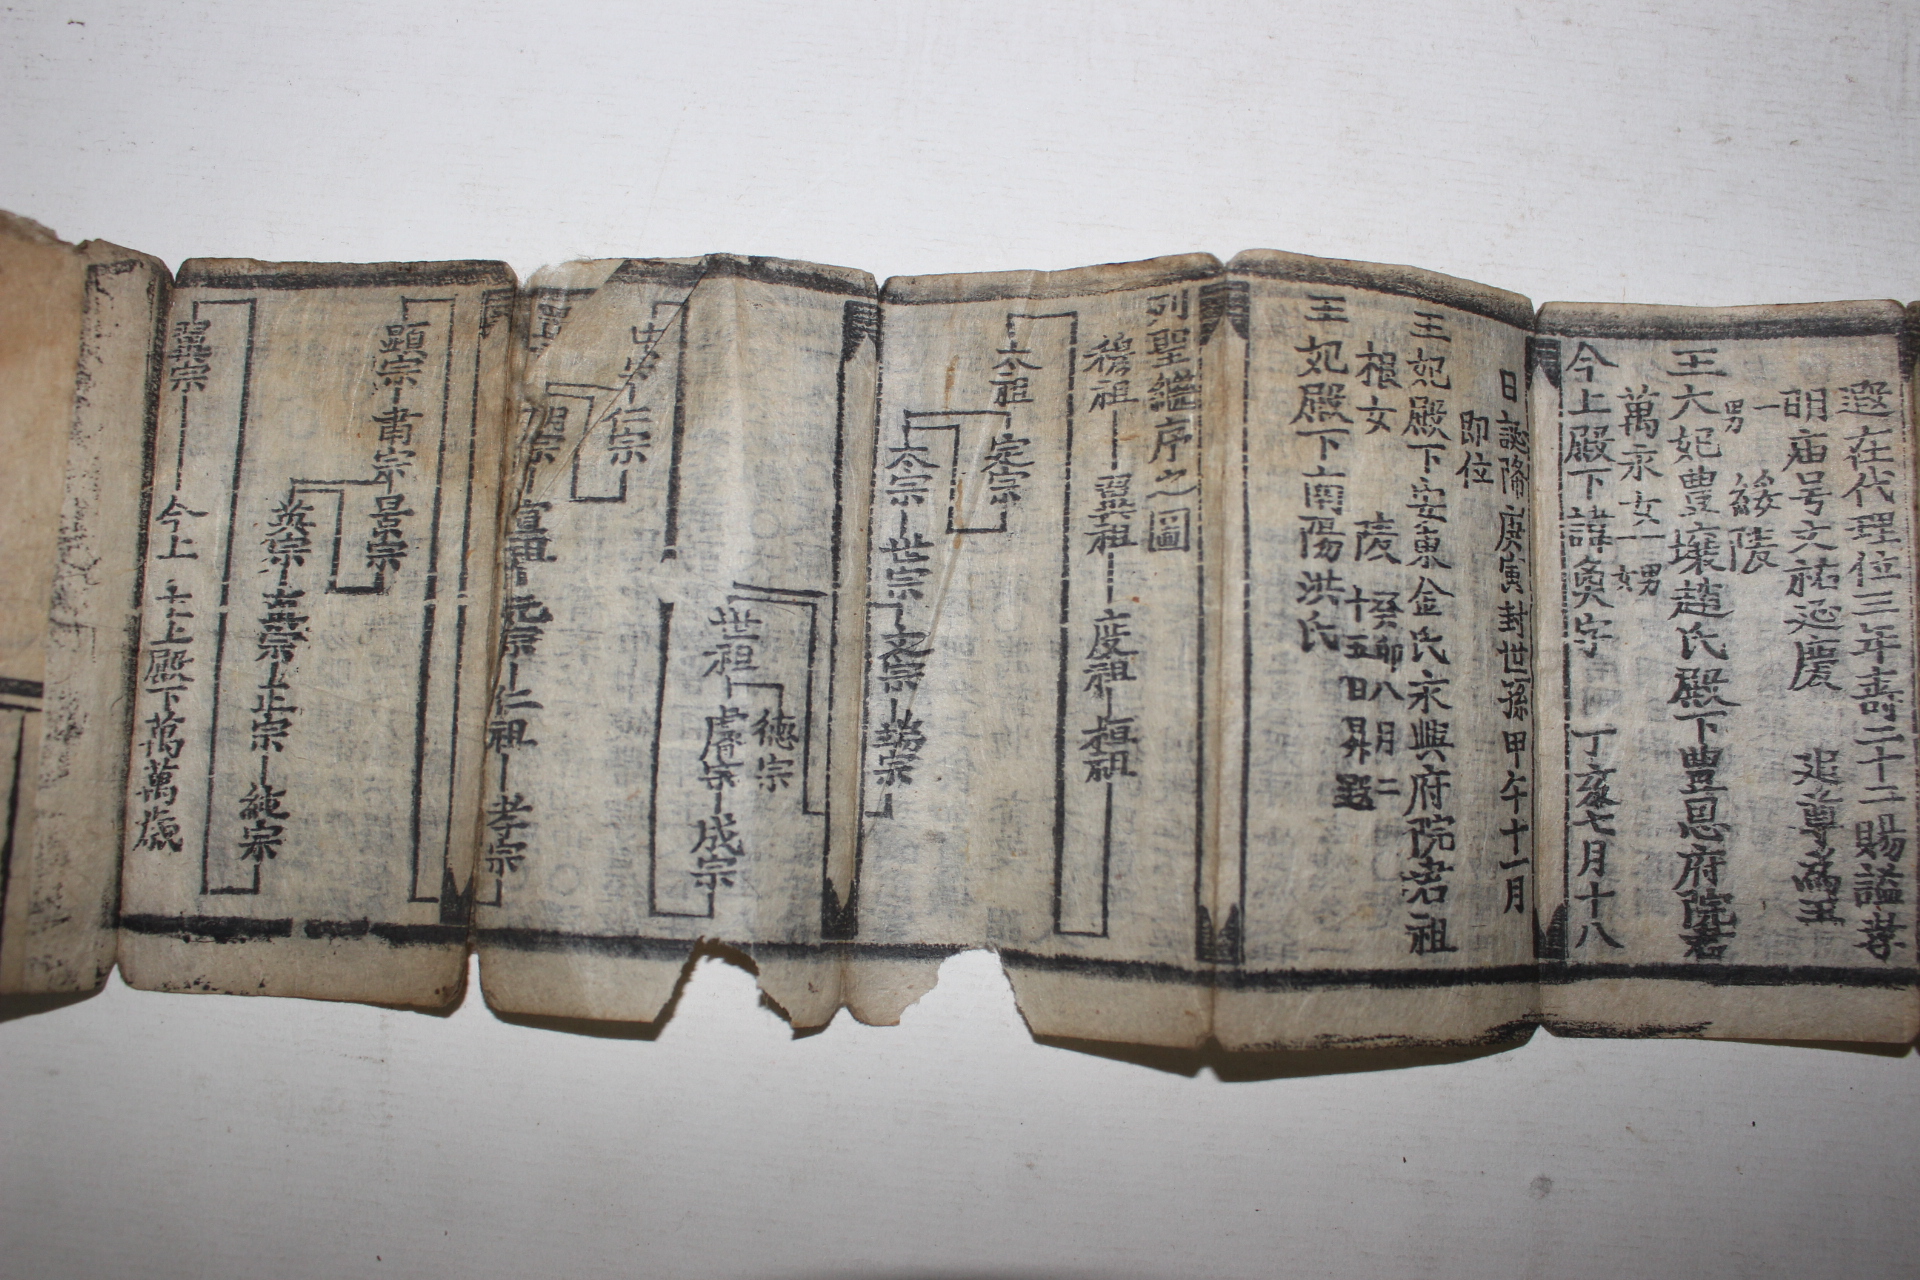 遐在代理位三年壽二十二賜諡孝
明庙号文祐延慶 追尊爲王
一男 綏陵
王大妃豊壤趙氏殿下豊恩府院君
萬永女一男
今上殿下諱奐字 丁亥七月十八
日誕降庚寅封世孫甲午十一月
即位
王妃殿下安東金氏永興府院君祖
根女 陵 癸卯八月二十五日昇遐
王妃殿下南陽洪氏
列聖繼序之圖
穆祖 翼祖 度祖 桓祖
太祖 定宗
太宗 世宗 文宗 端宗
世祖 德宗
睿宗 成宗
中宗 仁宗
明宗 宣祖 元宗 仁祖 孝宗
顯宗 肅宗 景宗
英宗 真宗 正宗 純宗
翼宗 今上 主上殿下萬萬歲